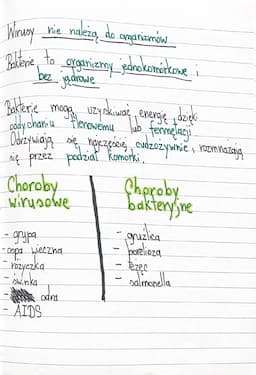 Wirusy nie należą do organizmów
Bakterie to organizmy jednokomórkowe i
bez jądrowe
Bakterie mogą uzyskiwać energię dzięki
oddychaniu tlenowemu lub fermetacji
Odżywiają się najczęściej cudzożywnie, rozmnażają
się przez podział komórki.
Choroby
wirusowe
- grypa
- ospa wieczna
- różyczka
- świnka
- odra
- AIDS
Choroby
bakteryjne
- gruźlica
- borelioza
- tężec
- salmonella